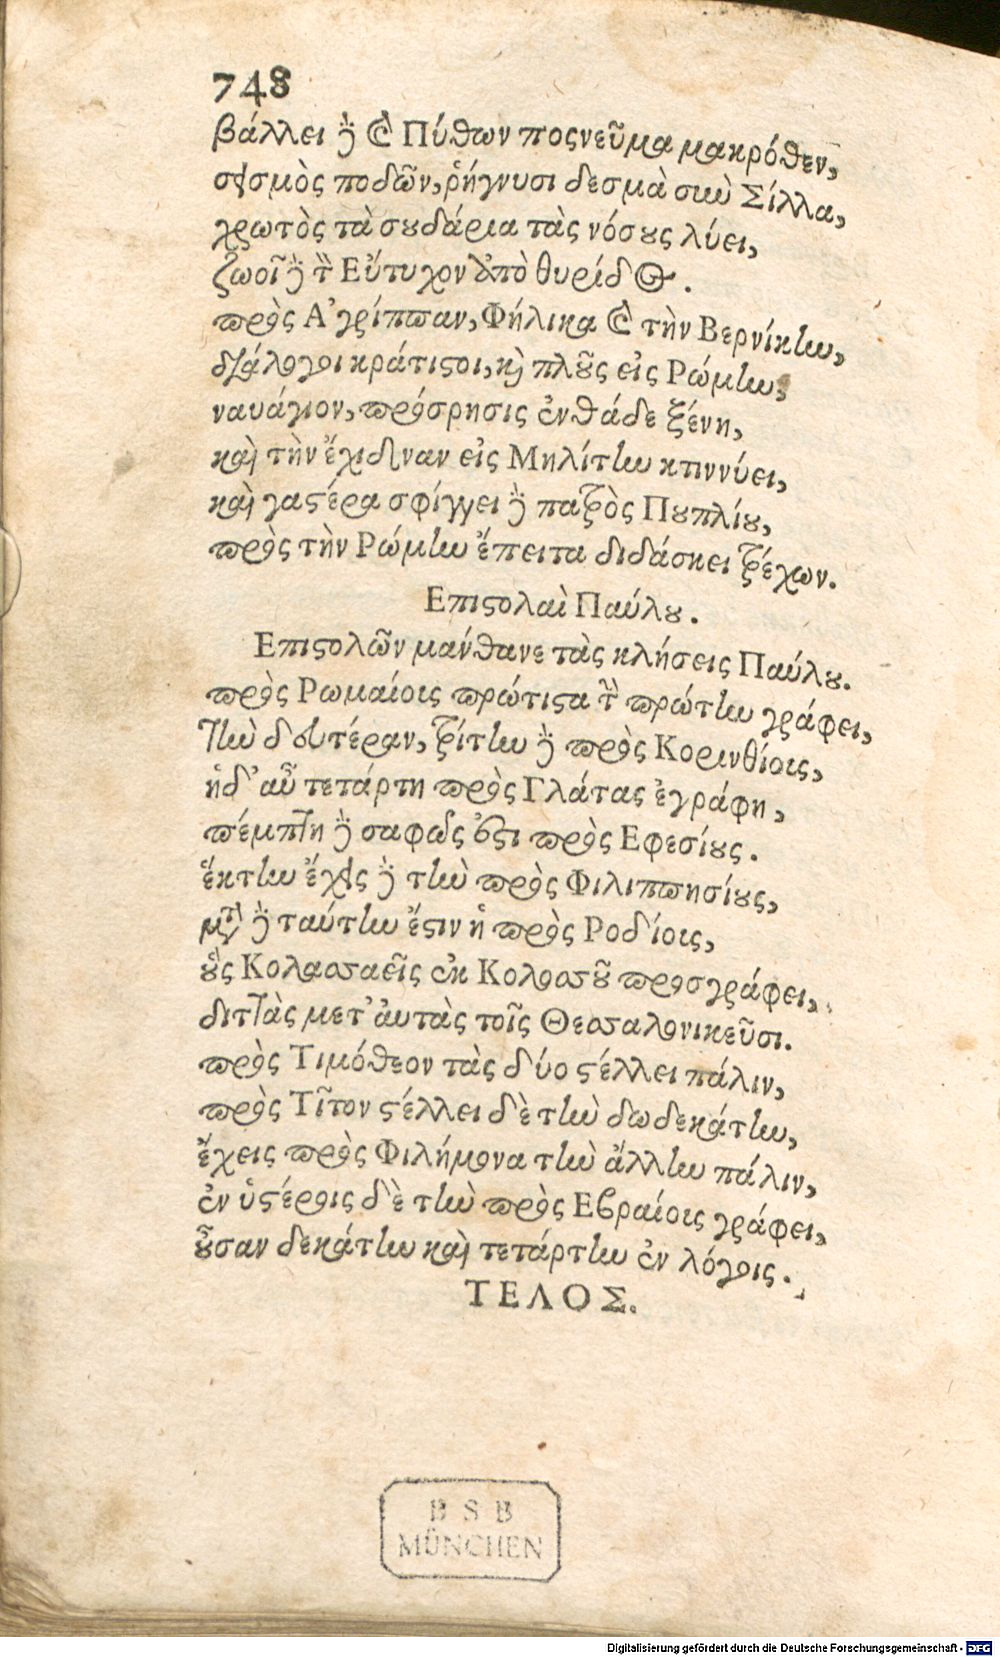 748
βάλλει δὲ καὶ Πύθων ποςνεῦμα μακρόθεν,
σεισμὸς ποδῶν, ῥήγνυσι δεσμὰ σιωὺ Σίλλα,
χρωτὸς τὰ σουδάρια τὰς νόσους λύει,
ζωοῖ δὲ τὸν Εὔτυχον ἀπὸ θυρίδος.
πρὸς Ἀγρίππαν, Φήλικα καὶ τὴν Βερνίκην,
διάλογοι κράτιστοι, καὶ πλοῦς εἰς Ρώμην,
ναυάγιον, πρόσρησις ἐνθάδε ξένη,
καὶ τὴν ἔχιδναν εἰς Μηλίτην κτιννύει,
καὶ γαστέρα σφίγγει δὲ πατρὸς Πουπλίου,
πρὸς τὴν Ρώμην ἔπειτα διδάσκει τρέχων.
Επιστολαὶ Παύλου.
Επιστολῶν μάνθανε τὰς κλήσεις Παύλου.
πρὸς Ρωμαίοις πρώτιστα τὴν πρώτην γράφει,
τὴν δευτέραν, τρίτην δὲ πρὸς Κορινθίοις,
ἡδ' αὖ τετάρτη πρὸς Γλάτας ἐγράφη,
πέμπτη δὲ σαφῶς ἐστι πρὸς Εφεσίους.
ἕκτην ἔχεις δὲ τὴν πρὸς Φιλιππησίους,
μετὰ δὲ ταύτην ἔστιν ἡ πρὸς Ροδίοις,
οὓς Κολασσαεῖς ἐκ Κολοσσοῦ προσγράφει,
διττὰς μετ' αὐτὰς τοῖς Θεσσαλονικεῦσι.
πρὸς Τιμόθεον τὰς δύο στέλλει πάλιν,
πρὸς Τῖτον στέλλει δὲ τὴν δωδεκάτην,
ἔχεις πρὸς Φιλήμονα τὴν ἄλλην πάλιν,
ἐν ὑστέροις δὲ τὴν πρὸς Εβραίοις γράφει,
οὖσαν δεκάτην καὶ τετάρτην ἐν λόγοις.
ΤΕΛΟΣ.
B S B
MÜNCHEN
Digitalisierung gefördert durch die Deutsche Forschungsgemeinschaft - DFG